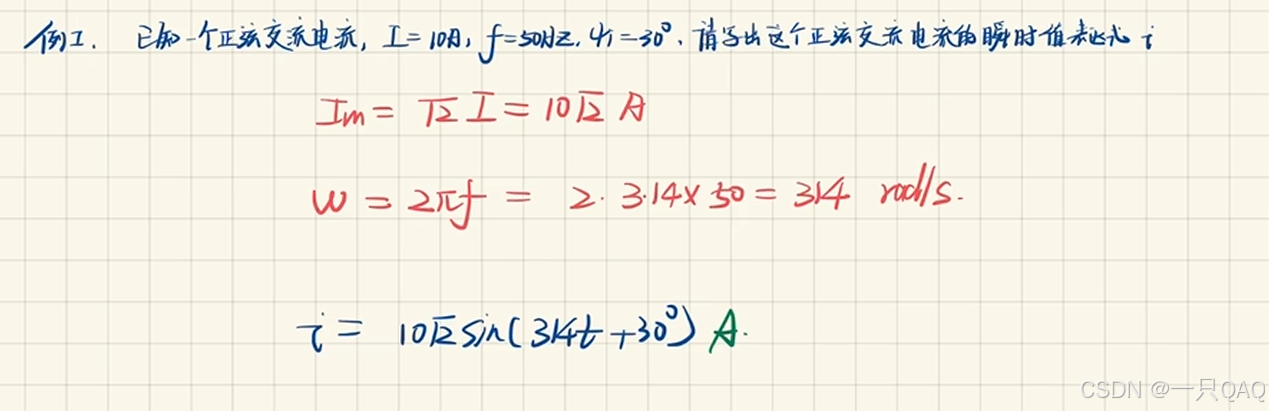 例1. 已知一个正弦交流电流, I=10A, f=50HZ, ψi=30°, 请写出这个正弦交流电流的瞬时值表达式 i
Im = √2 I = 10√2 A
w = 2πf = 2·3.14×50 = 314 rad/s.
i = 10√2 sin(314t+30°) A.
CSDN @一只QAQ